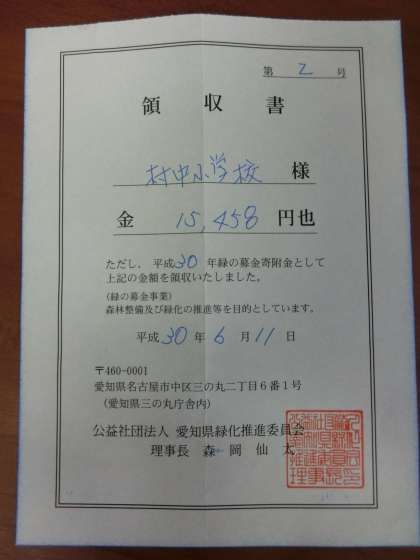 第 2 号
領収書
村中小学校 様
金 15,458 円也
ただし、平成30年緑の募金寄附金として
上記の金額を領収いたしました。
(緑の募金事業)
森林整備及び緑化の推進等を目的としています。
平成 30 年 6 月 11 日
〒460-0001
愛知県名古屋市中区三の丸二丁目6番1号
(愛知県三の丸庁舎内)
公益社団法人 愛知県緑化推進委員会
理事長 森岡仙太